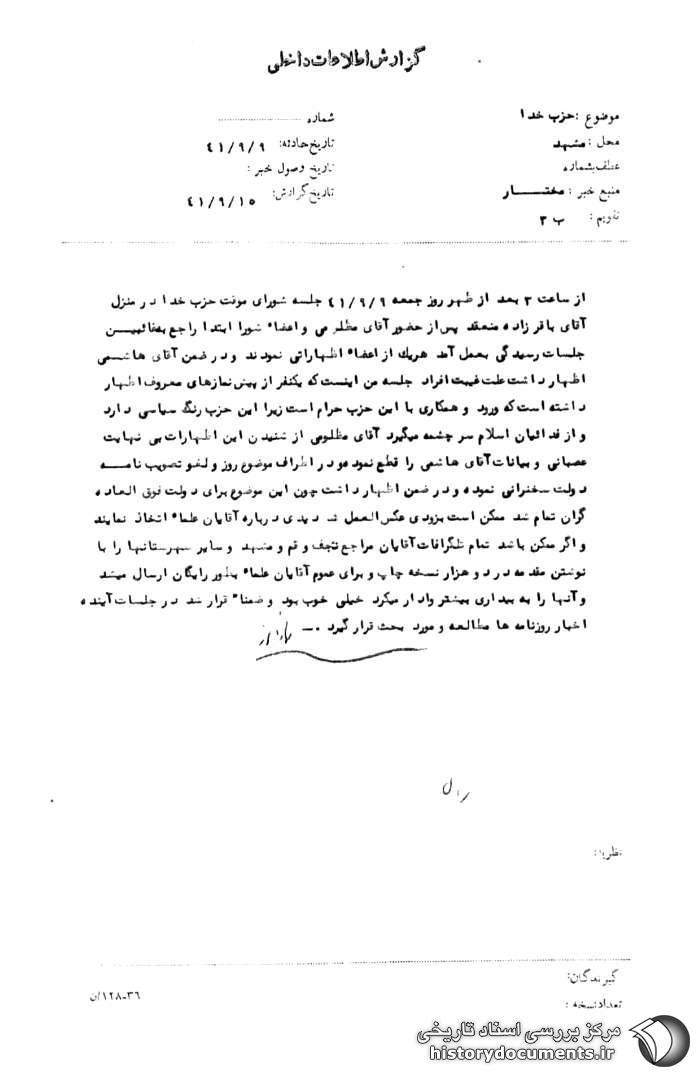 گزارش اطلاعات داخلی
موضوع : حزب خدا
محل : مشهد
عطف بشماره
منبع خبر : مختار
تقویم : ب ۳
شماره
تاریخ حادثه: ۴۱/۹/۹
تاریخ وصول خبر :
تاریخ گزارش: ۴۱/۹/۱۵
از ساعت ۳ بعد از ظهر روز جمعه ۴۱/۹/۹ جلسه شورای موقت حزب خدا در منزل
آقای باقرزاده منعقد پس از حضور آقای مظلومی و اعضاء شورا ابتدا راجع به غائبین
جلسات رسیدگی بعمل آمد هریک از اعضاء اظهاراتی نمودند و در ضمن آقای هاشمی
اظهار داشت علت غیبت افراد جلسه من اینست که یکنفر از پیش نمازهای معروف اظهار
داشته است که ورود و همکاری با این حزب حرام است زیرا این حزب رنگ سیاسی دارد
و از فدائیان اسلام سرچشمه میگیرد آقای مظلومی از شنیدن این اظهارات بی نهایت
عصبانی و بیانات آقای هاشمی را قطع نموده و در اطراف موضوع روز و لغو تصویب نامه
دولت سخنرانی نموده و در ضمن اظهار داشت چون این موضوع برای دولت فوق العاده
گران تمام شد ممکن است بزودی عکس العمل شدیدی درباره آقایان علماء اتخاذ نمایند
و اگر ممکن باشد تمام تلگرافات آقایان مراجع نجف و قم و مشهد و سایر شهرستانها را با
نوشتن مقدمه در دو هزار نسخه چاپ و برای عموم آقایان علماء بطور رایگان ارسال میشد
و آنها را به بیداری بیشتر وادار میکرد خیلی خوب بود و ضمناً قرار شد در جلسات آینده
اخبار روزنامه ها مطالعه و مورد بحث قرار گیرد .ـ
نظریه:
گیرندگان:
تعداد نسخه :
۳۶-۱۲۸/ن
مرکز بررسی اسناد تاریخی
historydocuments.ir